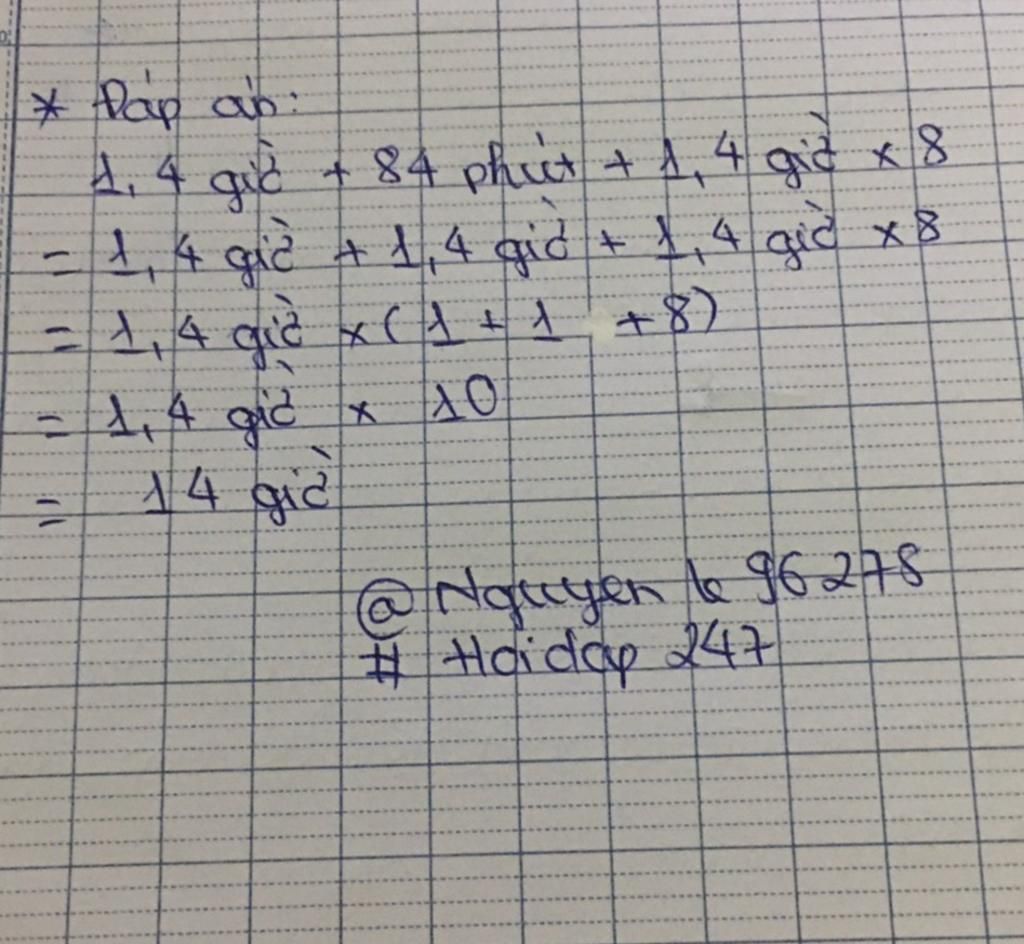 * Đáp án:
1,4 giờ + 84 phút + 1,4 giờ × 8
= 1,4 giờ + 1,4 giờ + 1,4 giờ × 8
= 1,4 giờ × (1 + 1 + 8)
= 1,4 giờ × 10
= 14 giờ
@ Nguyen le 96278
# Hoidap 247